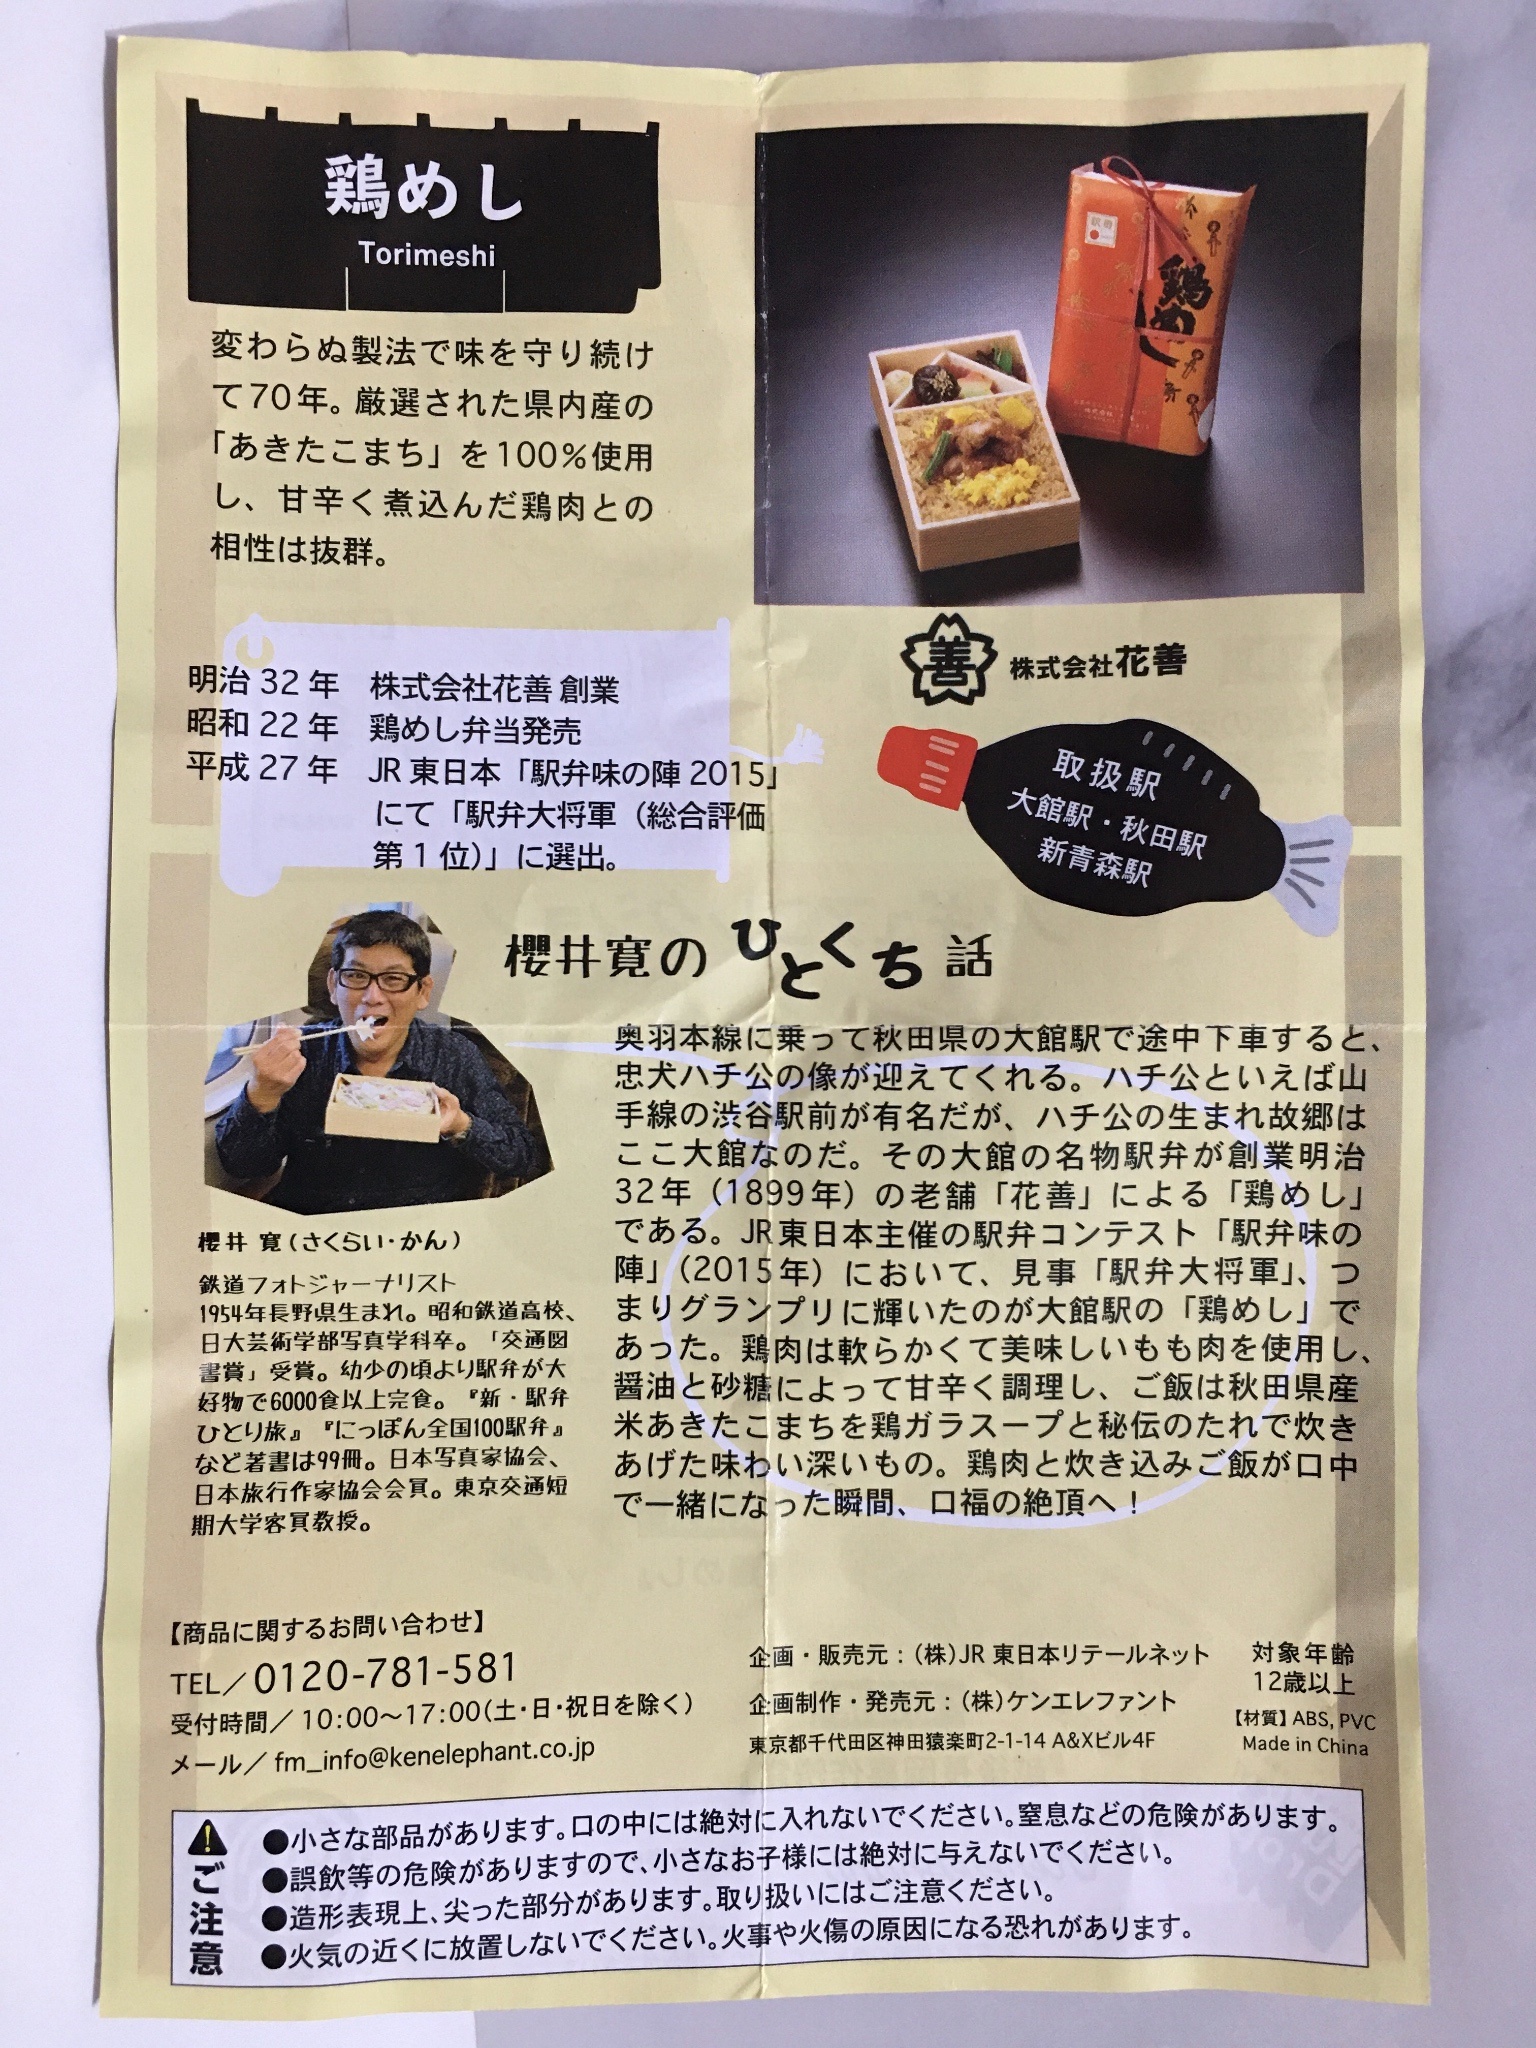 鶏めし
Torimeshi
変わらぬ製法で味を守り続け
て70年。厳選された県内産の
「あきたこまち」を100%使用
し、甘辛く煮込んだ鶏肉との
相性は抜群。
鶏めし
明治 32 年 株式会社花善 創業
昭和 22 年 鶏めし弁当発売
平成 27 年 JR 東日本「駅弁味の陣 2015」
にて「駅弁大将軍（総合評価
第 1 位）」に選出。
善 株式会社花善
取扱駅
大館駅・秋田駅
新青森駅
櫻井寛のひとくち話
奥羽本線に乗って秋田県の大館駅で途中下車すると、
忠犬ハチ公の像が迎えてくれる。ハチ公といえば山
手線の渋谷駅前が有名だが、ハチ公の生まれ故郷は
ここ大館なのだ。その大館の名物駅弁が創業明治
32年（1899年）の老舗「花善」による「鶏めし」
である。JR東日本主催の駅弁コンテスト「駅弁味の
陣」（2015年）において、見事「駅弁大将軍」、つ
まりグランプリに輝いたのが大館駅の「鶏めし」で
あった。鶏肉は軟らかくて美味しいもも肉を使用し、
醤油と砂糖によって甘辛く調理し、ご飯は秋田県産
米あきたこまちを鶏ガラスープと秘伝のたれで炊き
あげた味わい深いもの。鶏肉と炊き込みご飯が口中
で一緒になった瞬間、口福の絶頂へ！
櫻井 寛（さくらい・かん）
鉄道フォトジャーナリスト
1954年長野県生まれ。昭和鉄道高校、
日大芸術学部写真学科卒。「交通図
書賞」受賞。幼少の頃より駅弁が大
好物で6000食以上完食。『新・駅弁
ひとり旅』『にっぽん全国100駅弁』
など著書は99冊。日本写真家協会、
日本旅行作家協会会員。東京交通短
期大学客員教授。
【商品に関するお問い合わせ】
TEL／0120-781-581
受付時間／10:00〜17:00（土・日・祝日を除く）
メール／fm_info@kenelephant.co.jp
企画・販売元：（株）JR 東日本リテールネット
企画制作・発売元：（株）ケンエレファント
東京都千代田区神田猿楽町2-1-14 A&Xビル4F
対象年齢
12歳以上
【材質】ABS, PVC
Made in China
ご注意
●小さな部品があります。口の中には絶対に入れないでください。窒息などの危険があります。
●誤飲等の危険がありますので、小さなお子様には絶対に与えないでください。
●造形表現上、尖った部分があります。取り扱いにはご注意ください。
●火気の近くに放置しないでください。火事や火傷の原因になる恐れがあります。